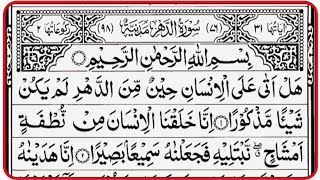 اٰيَاتُهَا ٣١ (٧٦) سُوْرَةُ الدَّهْرِ مَدَنِيَّةٌ (٩٨) رُكُوْعَاتُهَا ٢
بِسْمِ اللّٰهِ الرَّحْمٰنِ الرَّحِيْمِ
هَلْ اَتٰى عَلَى الْاِنْسَانِ حِيْنٌ مِّنَ الدَّهْرِ لَمْ يَكُنْ
شَيْـًٔا مَّذْكُوْرًا ۝١ اِنَّا خَلَقْنَا الْاِنْسَانَ مِنْ نُّطْفَةٍ
اَمْشَاجٍ ۖ نَّبْتَلِيْهِ فَجَعَلْنٰهُ سَمِيْعًۢا بَصِيْرًا ۝٢ اِنَّا هَدَيْنٰهُ